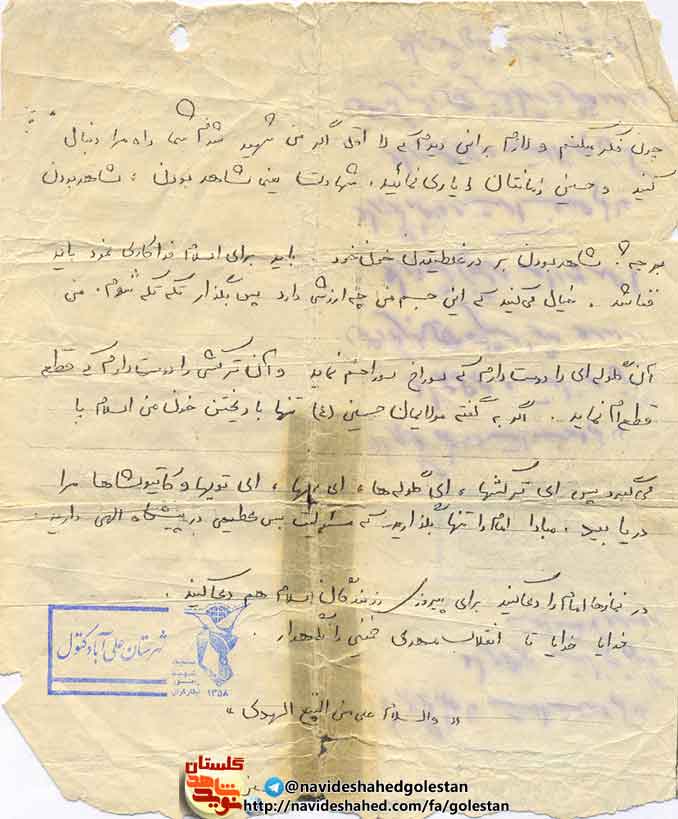 چون فکر میکنم و لازم بر این دیدم که لا اقل اگر من شهید شدم شما راه مرا دنبال
کنید و حسین زمانتان را یاری نمائید. شهادت یعنی شاهد بودن، شاهد بودن
بر چه؟ شاهد بودن بر در غلطیدن خون خود. باید برای اسلام فداکاری نمود باید
فنا شد. خیال می‌کنید که این جسم من چه ارزشی دارد پس بگذار تکه تکه شوم. من
آن گلوله‌ای را دوست دارم که سوراخ سوراخم نماید و آن ترکشی را دوست دارم که قطعه
قطعه‌ام نماید. اگر به گفته مولایمان حسین (ع) تنها با ریختن خون من اسلام پا
می‌گیرد پس ای ترکشها، ای گلوله‌ها، ای بمبها، ای توپها و کاتیوشاها مرا
دریابید. مبادا امام را تنها بگذارید که مسئولیت بس عظیمی در پیشگاه الهی دارید.
در نمازها امام را دعا کنید برای پیروزی رزمندگان اسلام هم دعا کنید.
خدایا خدایا تا انقلاب مهدی خمینی را نگهدار.
« والسلام علی من التبع الهدی »
شهرستان علی آباد کتول
۱۳۵۸
گلستان
نوید شاهد
@navideshahedgolestan
http://navideshahed.com/fa/golestan